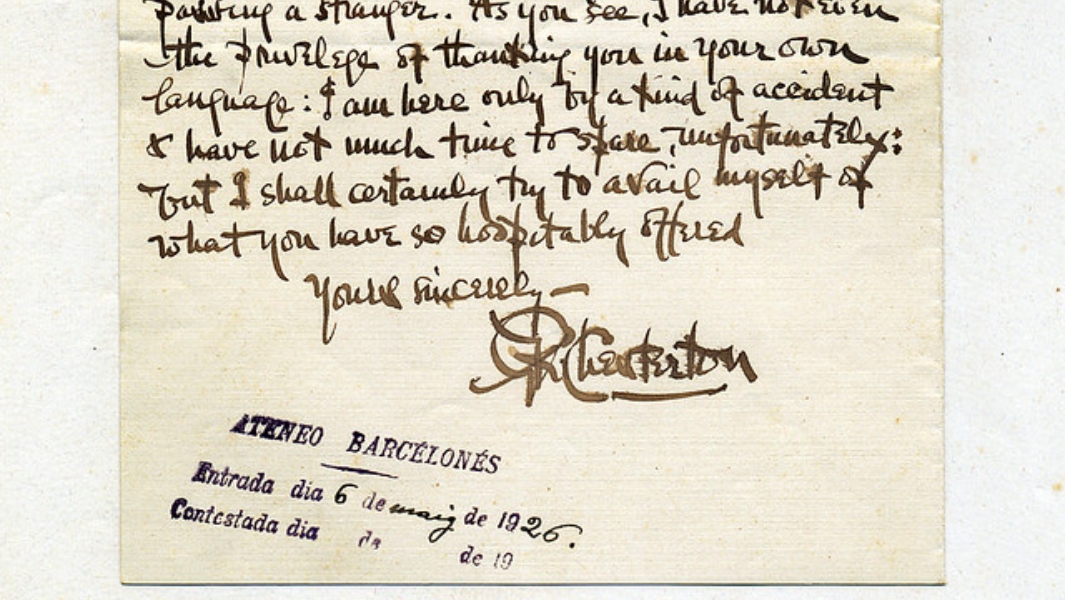 a stranger. As you see, I have not even
the privelege of thanking you in your own
language: I am here only by a kind of accident
& have not much time to spare, unfortunately:
but I shall certainly try to avail myself of
what you have so hospitably offered
Yours sincerely —
GK Chesterton
ATENEO BARCELONÉS
Entrada dia 6 de maig de 1926.
Contestada dia de de 19